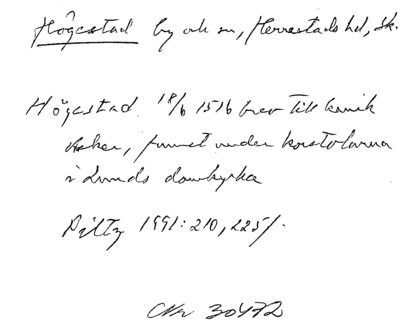 Högestad by och sn, Herrestads hd, Sk.
Högestad 18/6 1516 brev till kanik
Asker, funnet under korstolarna
i Lunds domkyrka
Piltz 1991: 210, 225f.
30472